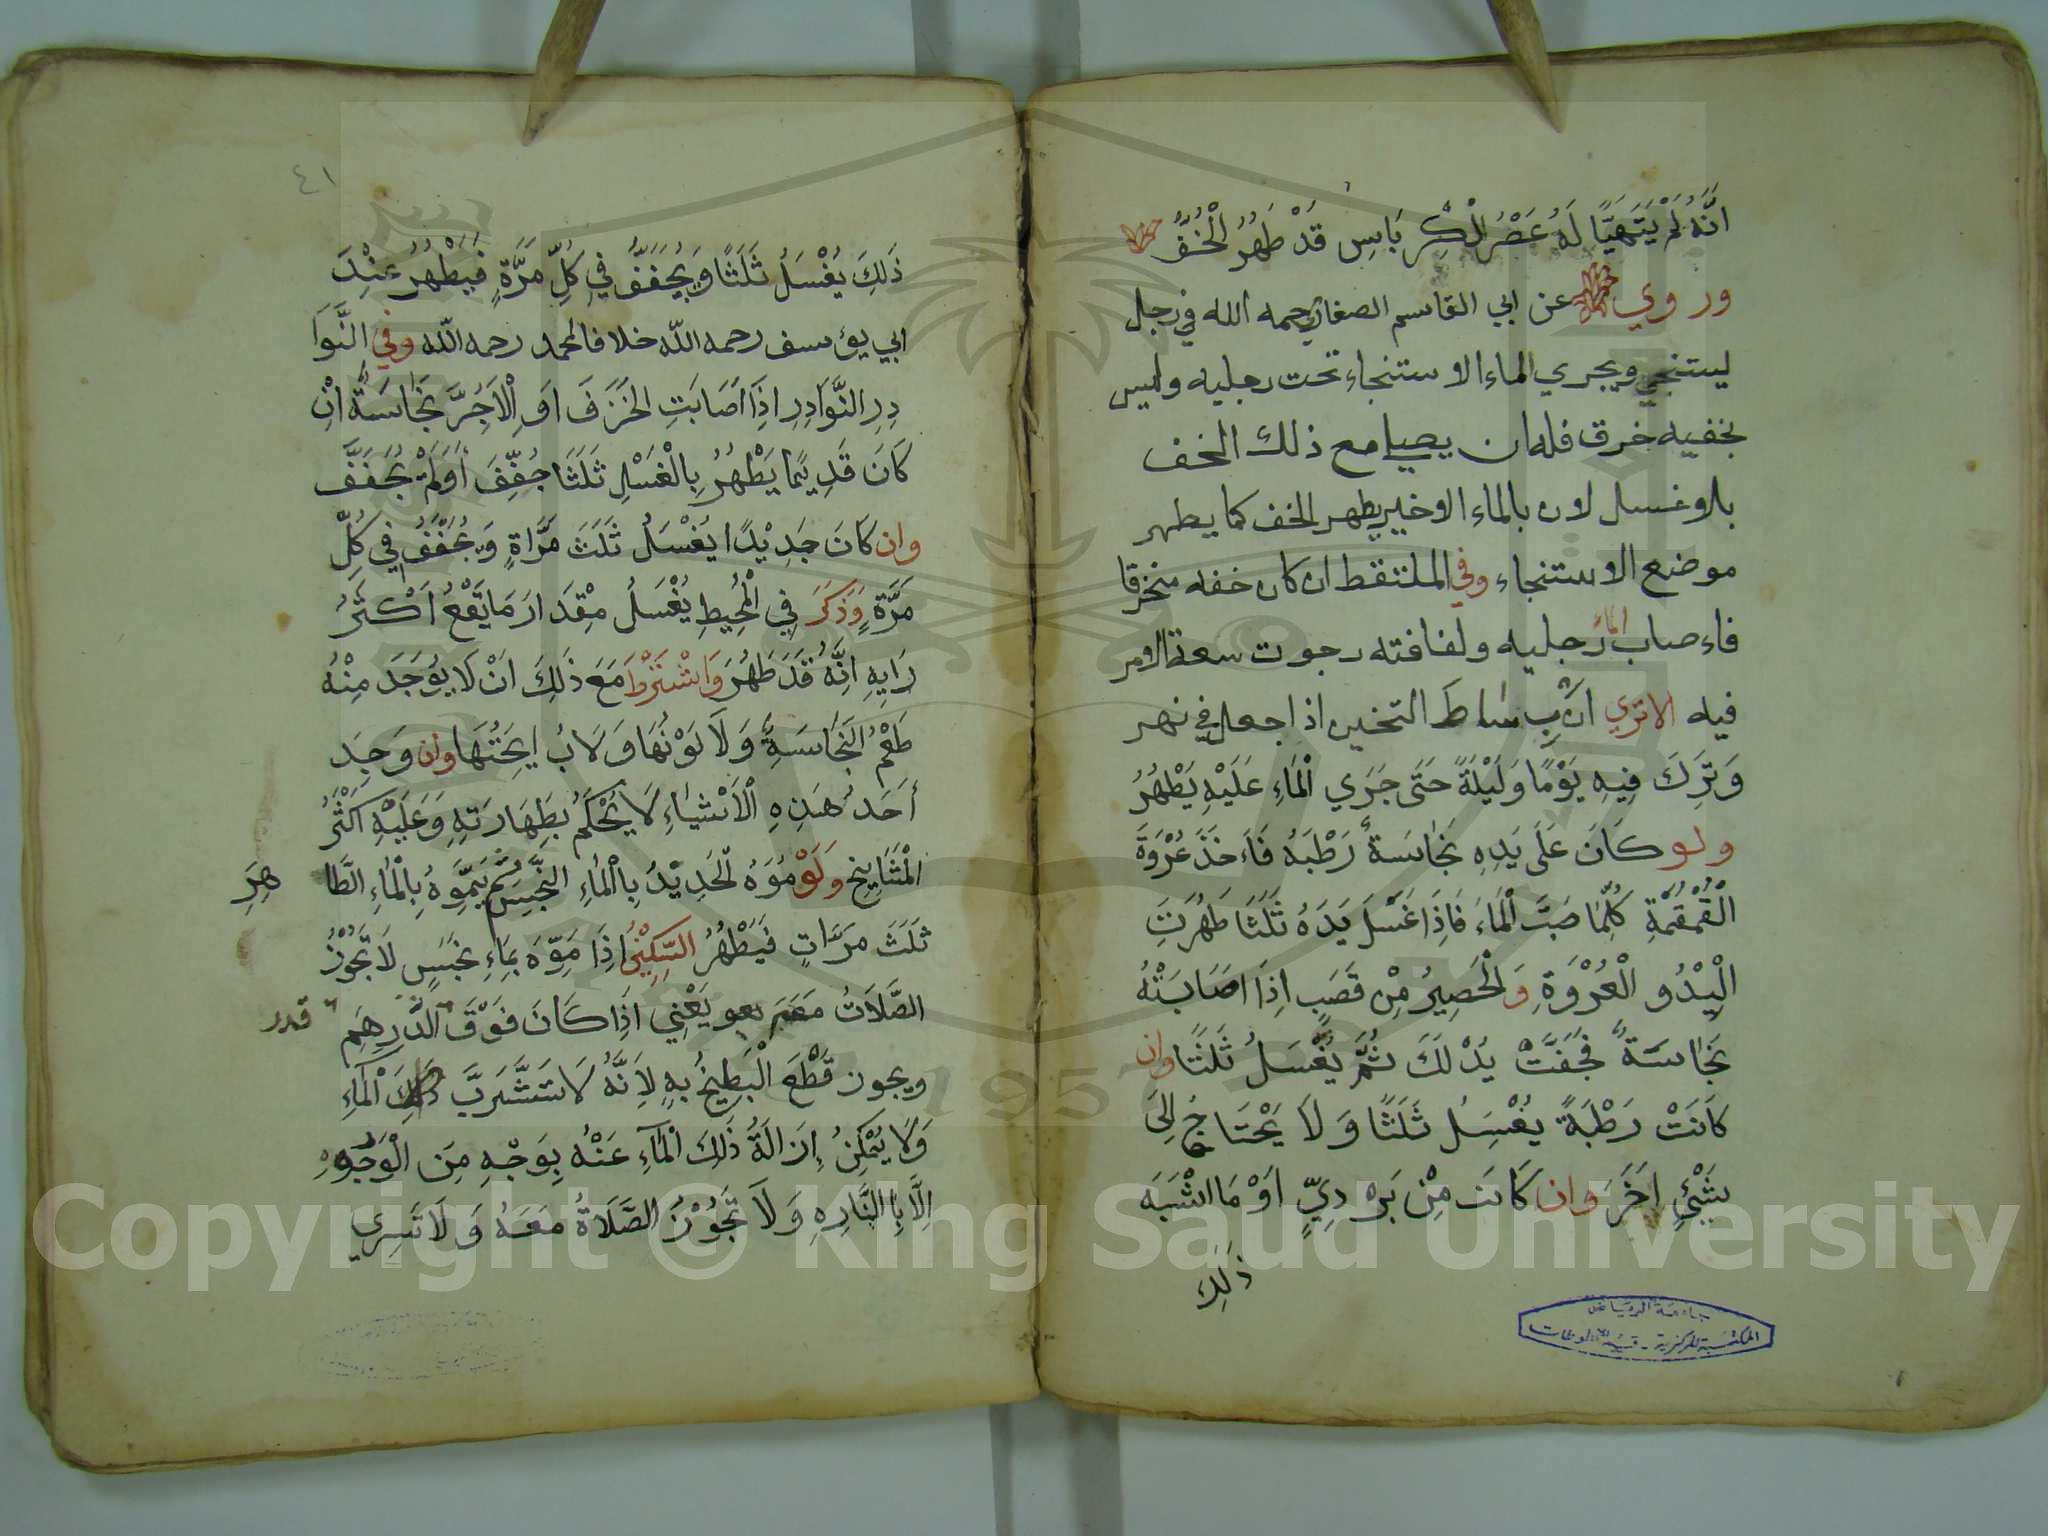 اَنَّهُ لَمْ يَتَهَيَّا لَهُ عَصْرُ الْكِرْبَاسِ قَدْ طَهُرَ الْخُفُّ
وروي عن ابي القاسم الصفار رحمه الله في رجل
ليستنجي ويجري الماء الاستنجاء تحت رجليه وليس
بخفيه خرق فله ان يصلي مع ذلك الخف
بلا غسل لان بالماء الاخير يطهر الخف كما يطهر
موضع الاستنجاء وفي الملتقط ان كان خفه منخرقا
فاءصاب الماء رجليه ولفافته رجوت سعة الامر
فيه الا تري ان بساط التخين اذا جعل في نهر
وَتَرِكَ فِيهِ يَوْمًا وَلَيْلَةً حَتَى جَرَي الْمَاءِ عَلَيْهِ يَطْهُرُ
ولو كَانَ عَلَى يَدِهِ نَجَاسَةٌ رَطْبَهُ فَاَخَذَ عُرْوَةَ
الْقُمْقُمَةِ كُلَّمَا صَبَّ الْمَاءَ فَاِذَا غَسَلَ يَدَهُ ثَلَثًا طَهُرَتِ
الْيَدُ و الْعُرْوَةِ وَالْحَصِيرُ مِنْ قَصَبٍ اِذَا اصَابَتْهُ
نَجَاسَةٌ فَجُفَفَّتْ يُدْلَكَ ثُمَّ يُغْسَلُ ثَلَثًا وان
كَانَتْ رَطْبَةً يُغْسِلُ ثَلَثًا وَلَا يَحْتَاجُ اِلىَ
شَيْئٍ اخَرَ وان كَانَت مِنْ بَرْدِيٍّ اَوْ مَا اشْبَهَ
ذَلِكَ
جامعة الرياض
المكتبة المركزية - قسم المخطوطات
٤١
ذَلِكَ يُغْسَلُ ثَلَثًا وَيُجَفَفُّ فِي كُلِّ مَرَّةٍ فَيَطْهُرُ عِنْدَ
ابي يوسف رحمه الله خلافا لمحمد رحمه الله وفي النَّوَا
دِرِ النَّوَادِرِ اِذَا اَصَابَتِ الخَزَفَ اَوِ الْاَجُرَّ نَجَاسَةٌ اِنْ
كَانَ قَدِيمًا يَطْهُرُ بِالْغَسْلِ ثَلَثًا جُفِّفَ اَوَلَمْ يُجَفَفَّ
وان كَانَ جَدِيْدًا يُغْسَلُ ثَلَثَ مَرَّاةٍ وَيُجَفْفُ فِي كُلِّ
مَرَّةٍ وَذَكَرَ فِي الْمُحِيطِ يُغْسَلُ مِقْدَارَ مَا يَقَعُ اَكْثَرُ
رَايِهِ اِنَّهُ قَدَ طَهُرَ وَاشْتَرَطَ مَعَ ذَلِكَ اَنْ لَا يُوجَدَ مِنْهُ
طَعْمُ النَّجَاسَةِ وَلَا لَوْنُهَا وَلَا رايِحَتُهَا وان وَجِدَ
اَحَدُ هَذِهِ الْاَشْيَاءِ لَا يُحْكَمُ بِطَهَارَتِهِ وَعَلَيْهِ اَكْثَرُ
الْمَشَايِخِ وَلَوْ مُوَّهَ الْحَدِيْدُ بِالْمَاءِ النَّجِسِ ثُمَّ يَمُوِّهُ بِالْمَاءِ الطَّا هِرِ
ثَلَثَ مَرَّاتٍ فَيَطْهُرُ السِّكِّيْنُ اِذَا مَوِّهَ بِمَاءِ نَجَسٍ لَا تَجُوْزُ
الصَّلَاةُ مَعَهُ يَعْنِي اِذَا كَانَ فَوْقَ الدِّرهَمِ قدر
ويجوز قَطْعَ الْبَطِيخُ بِهِ لِاَنَّهُ لَا تَتَشَّرَبَّ ذَلِكَ الْمَاءِ
وَلَا يُمْكِنُ اِزَالَةُ ذَلِكَ الْمَاءِ عَنْهُ بِوَجْهِ مِنَ الْوَجُوهِ
اِلَّا بِالنَّارِهِ وَلَا تَجُوْزُ الصَّلَاةُ مَعَهُ وَلَا تَسِرِي
Copyright © King Saud University
1957